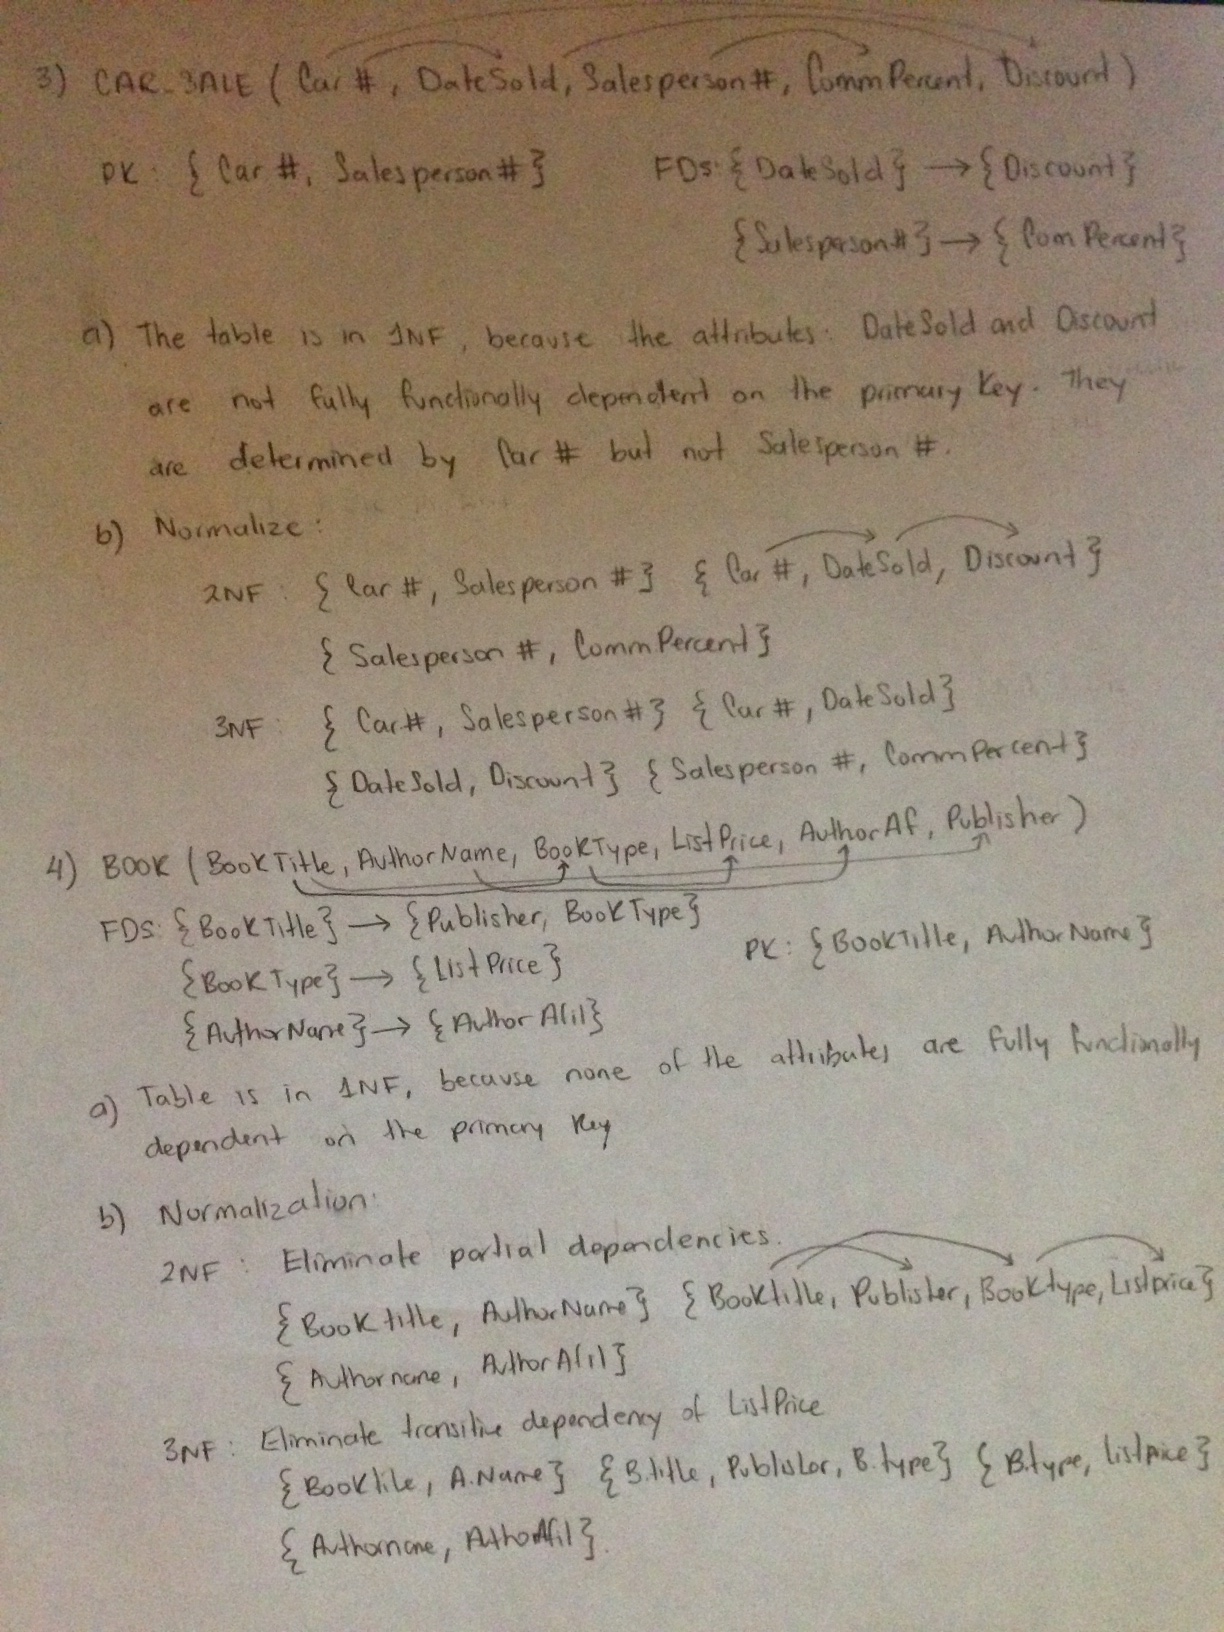 3) CAR_SALE ( Car #, DateSold, Salesperson#, CommPercent, Discount )
PK: { Car #, Salesperson # } FDs: { DateSold } → { Discount }
{ Salesperson# } → { ComPercent }
a) The table is in 1NF, because the attributes: DateSold and Discount
are not fully functionally dependent on the primary key. They
are determined by Car # but not Salesperson #.
b) Normalize:
2NF: { Car #, Salesperson # } { Car #, DateSold, Discount }
{ Salesperson #, CommPercent }
3NF: { Car#, Salesperson# } { Car #, DateSold }
{ DateSold, Discount } { Salesperson #, CommPercent }
4) BOOK ( BookTitle, AuthorName, BookType, ListPrice, AuthorAf, Publisher )
FDs: { BookTitle } → { Publisher, BookType }
PK: { BookTitle, AuthorName }
{ BookType } → { ListPrice }
{ AuthorName } → { AuthorAfil }
a) Table is in 1NF, because none of the attributes are fully functionally
dependent on the primary key
b) Normalization:
2NF: Eliminate partial dependencies.
{ Booktitle, AuthorName } { Booktitle, Publisher, Booktype, Listprice }
{ Authorname, AuthorAfil }
3NF: Eliminate transitive dependency of ListPrice
{ Booktile, A.Name } { B.title, Publisher, B.type } { B.type, listprice }
{ Authorname, AuthorAfil }.